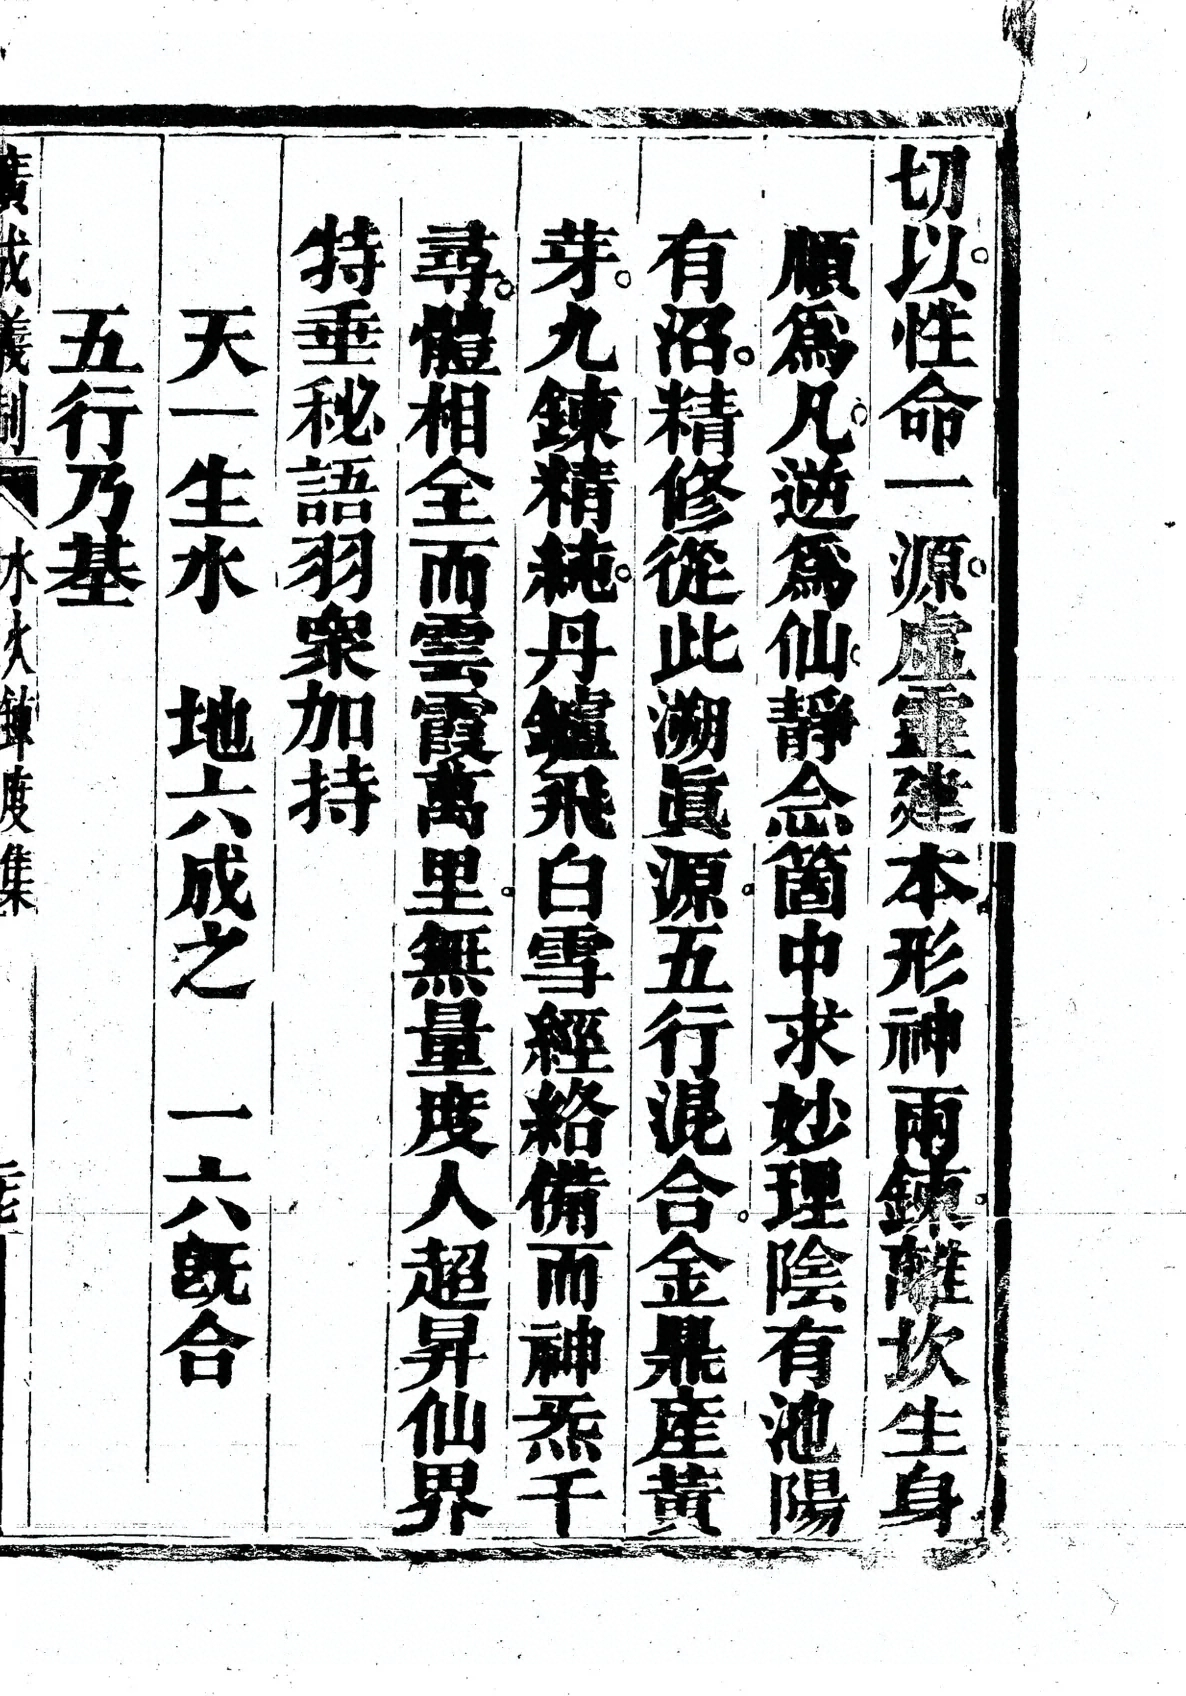 切以性命一源虛靈建本形神兩鍊離坎生身
順爲凡逆爲仙靜念箇中求妙理陰有池陽
有沼精修從此溯眞源五行混合金鼎產黃
芽九鍊精純丹鑪飛白雪經絡備而神炁千
尋體相全而雲霞萬里無量度人超昇仙界
特垂秘語羽衆加持
天一生水　地六成之　一六既合
五行乃基
廣成儀制　水火鍊度集